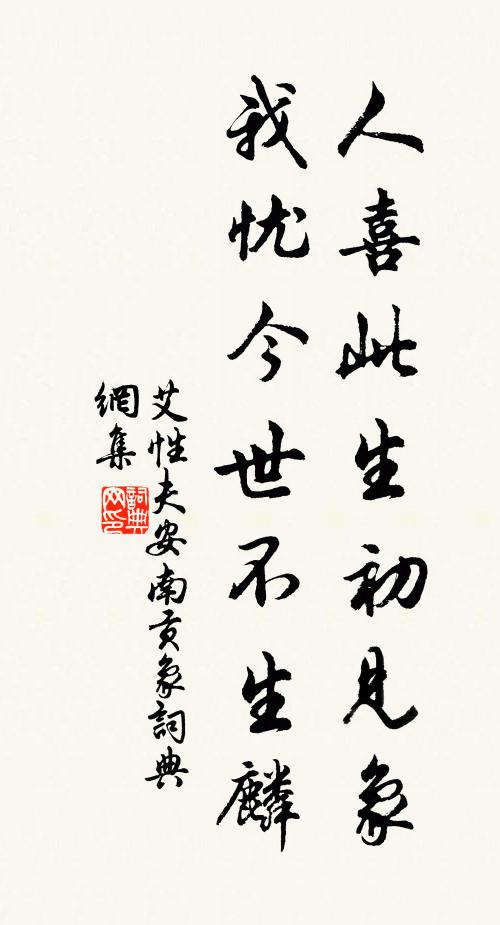 人喜此生初見象
我忧今世不生麟
艾性夫安南贡象詞典
網集
詞典
网印